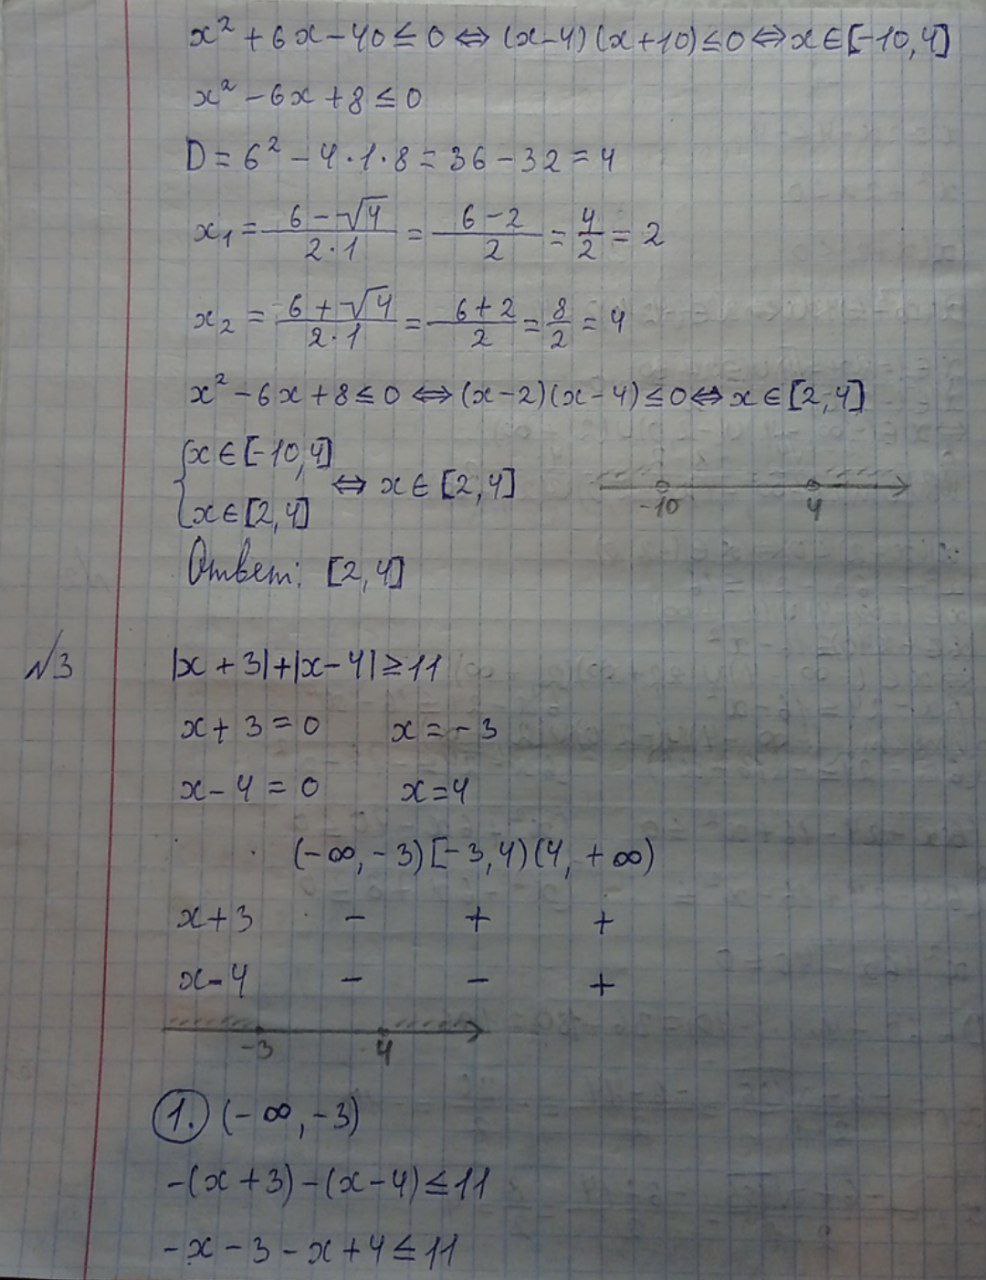 x² + 6x - 40 ≤ 0 ⇔ (x-4)(x+10) ≤ 0 ⇔ x ∈ [-10, 4]
x² - 6x + 8 ≤ 0
D = 6² - 4·1·8 = 36 - 32 = 4
x₁ = (6 - √4)/(2·1) = (6 - 2)/2 = 4/2 = 2
x₂ = (6 + √4)/(2·1) = (6 + 2)/2 = 8/2 = 4
x² - 6x + 8 ≤ 0 ⇔ (x-2)(x-4) ≤ 0 ⇔ x ∈ [2, 4]
{ x ∈ [-10, 4]
x ∈ [2, 4] ⇔ x ∈ [2, 4]
-10 4
Ответ: [2, 4]
№3 |x + 3| + |x - 4| ≥ 11
x + 3 = 0 x = -3
x - 4 = 0 x = 4
(-∞, -3) [-3, 4) (4, +∞)
x+3 - + +
x-4 - - +
-3 4
1. (-∞, -3)
-(x + 3) - (x - 4) ≤ 11
-x - 3 - x + 4 ≤ 11